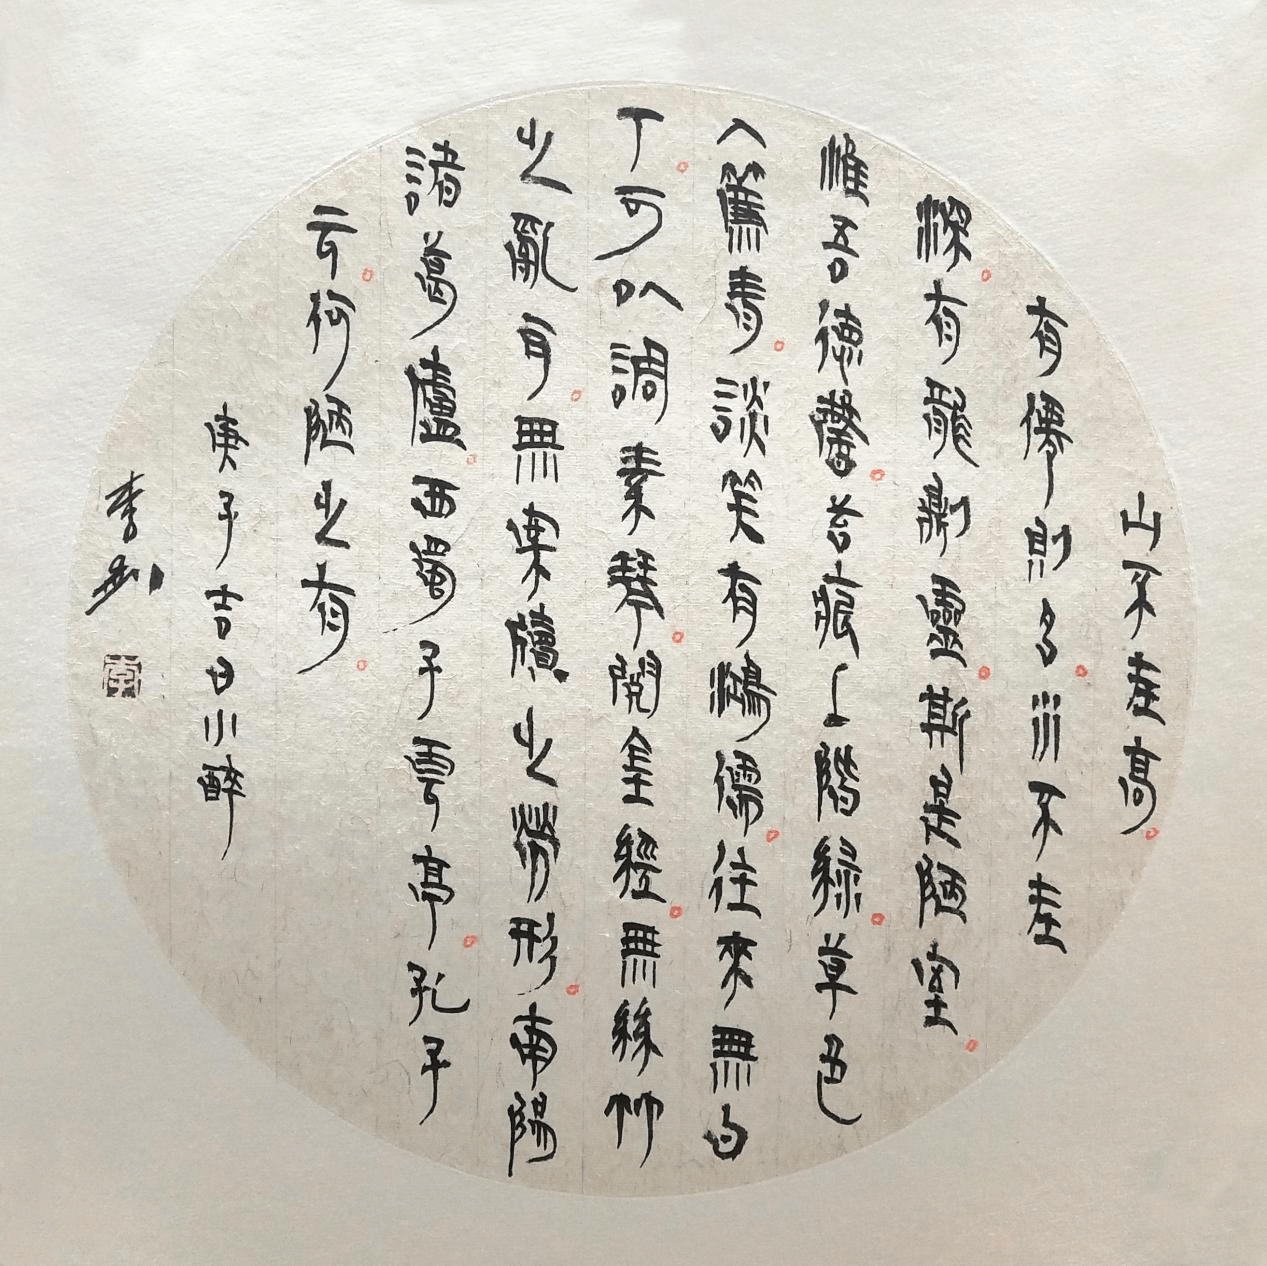 山不在高
有僊則名水不在
深有龍則靈斯是陋室
惟吾德馨苔痕上階綠草色
入簾青談笑有鴻儒往來無白
丁可以調素琴閱金經無絲竹
之亂耳無案牘之勞形南陽
諸葛廬西蜀子雲亭孔子
云何陋之有
庚子吉日小醉
李